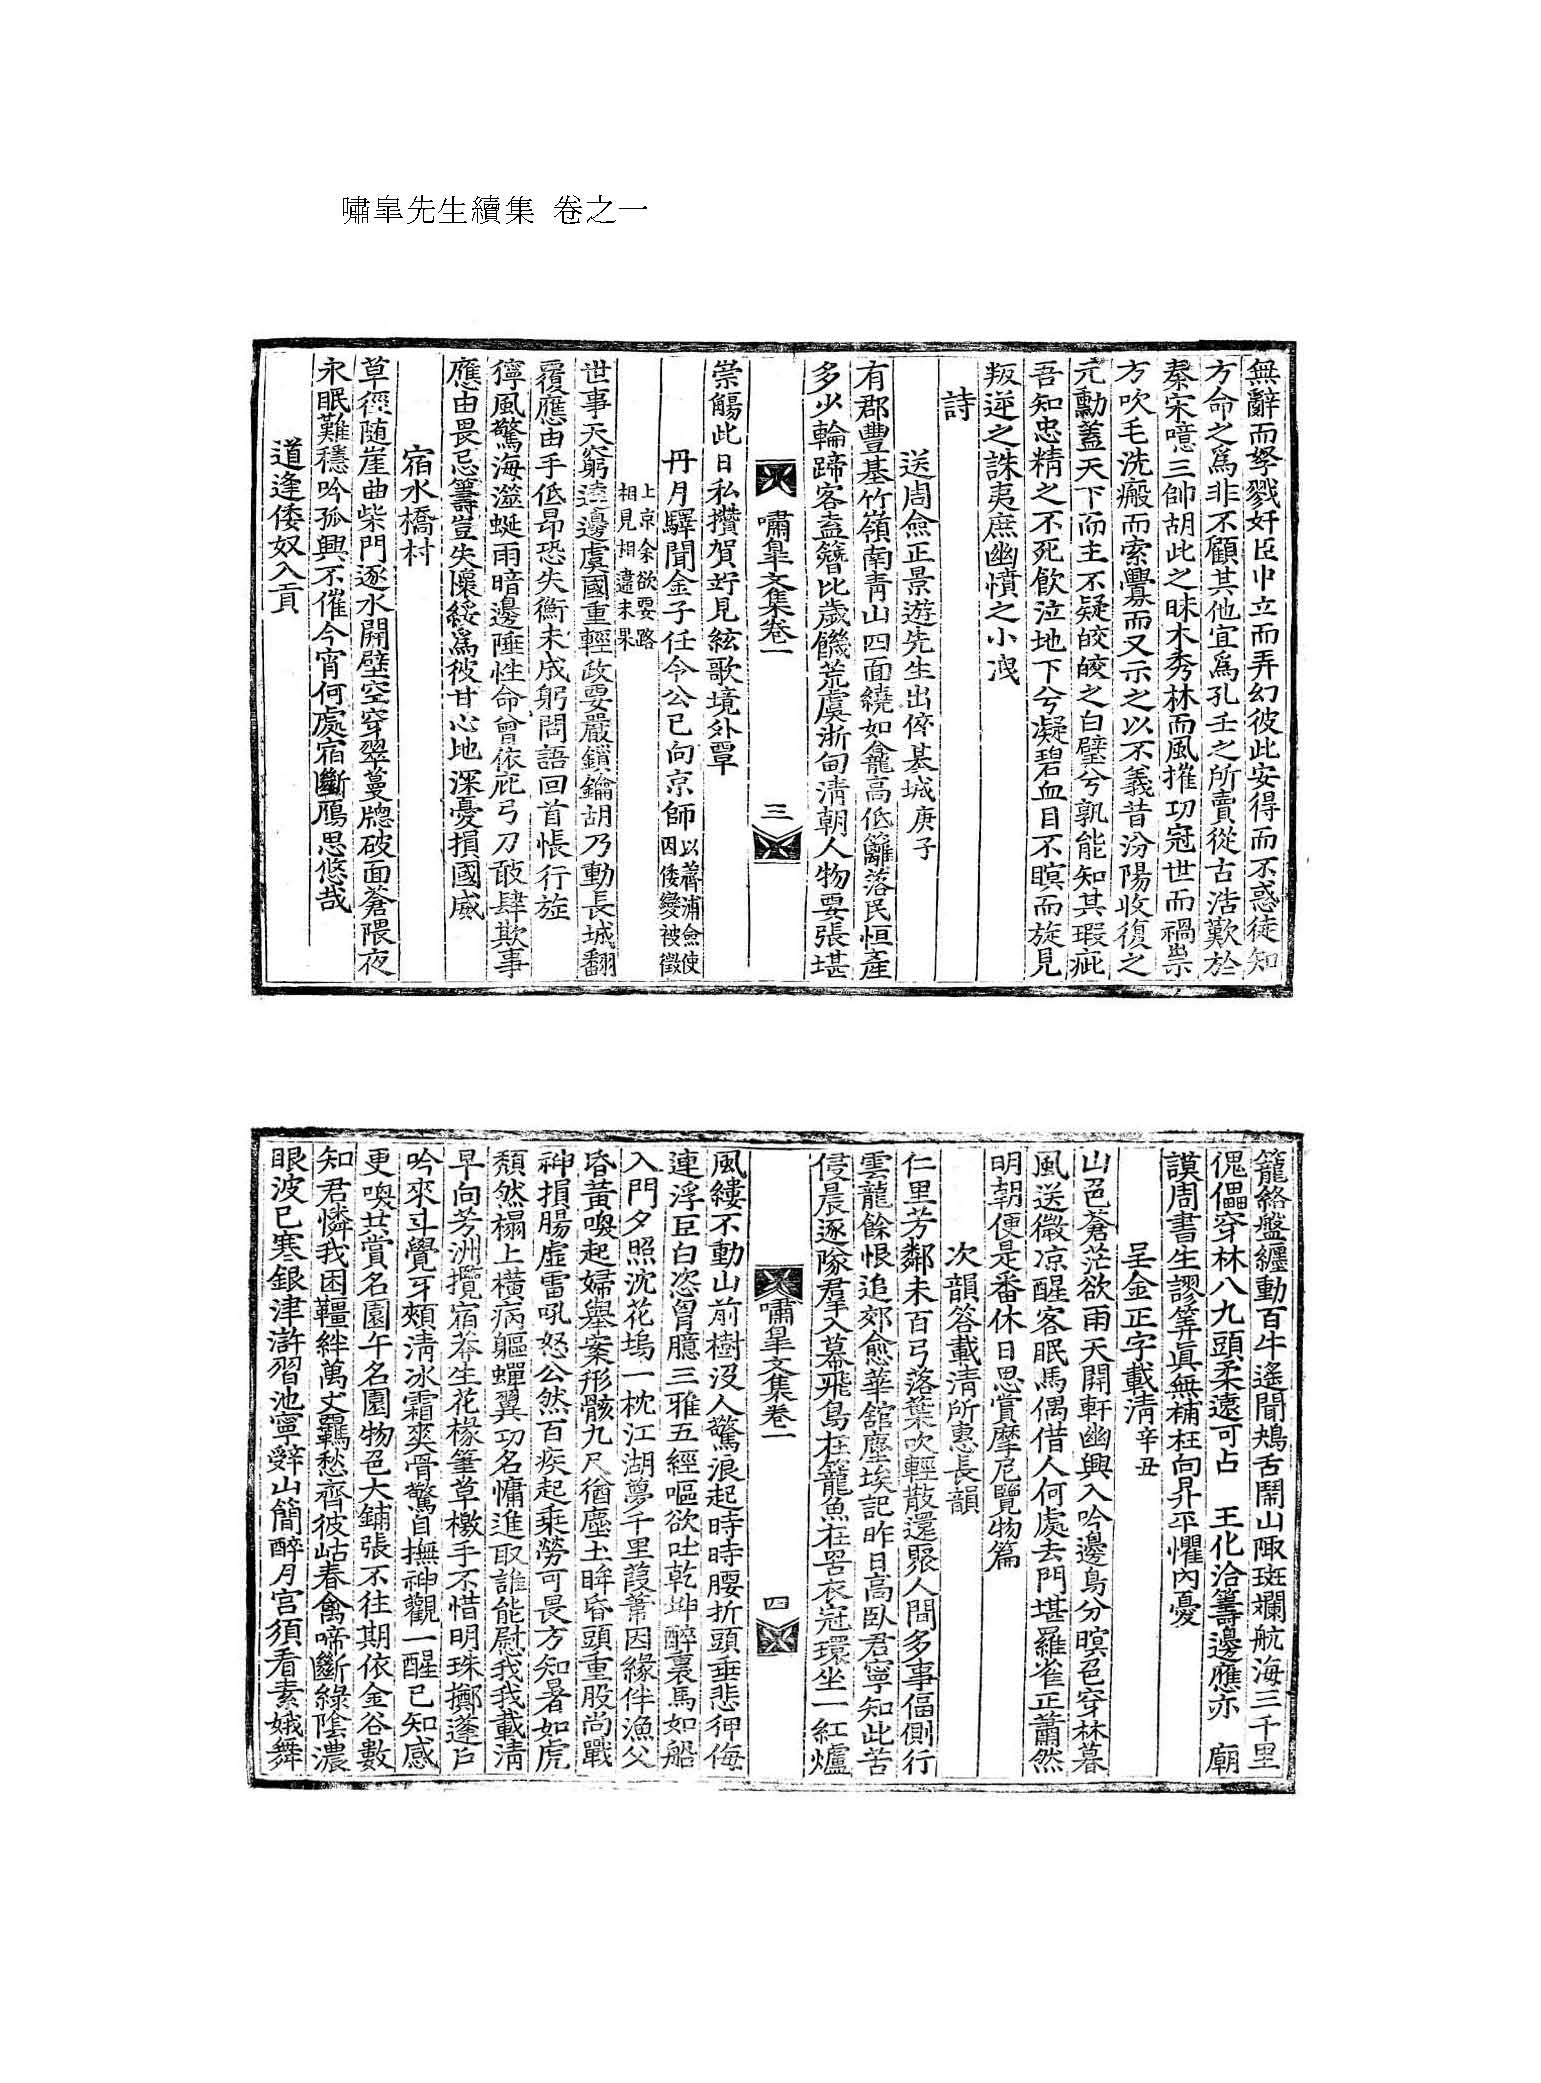 嘯皐先生續集 卷之一
無辭而孥戮奸臣中立而弄幻彼此安得而不惑徒知
方命之爲非不顧其他宜爲孔壬之所賣從古浩歎於
秦宋噫三帥胡此之昧木秀林而風摧功冠世而禍崇
方吹毛洗瘢而索釁而又示之以不義昔汾陽收復之
元勳蓋天下而主不疑皎皎之白璧兮孰能知其瑕疵
吾知忠精之不死飮泣地下兮凝碧血目不瞑而旋見
叛逆之誅夷庶幽憤之小洩
詩
送周僉正景遊先生出倅基城庚子
有郡豐基竹嶺南靑山四面繞如龕高低籬落民恒產
多少輪蹄客盍簪比歲饑荒虞浙甸淸朝人物要張堪
嘯皐文集卷一
三
崇觴此日私攢賀竚見絃歌境外覃
丹月驛聞金子任令公已向京師以薺浦僉使因倭變被徵
上京余欲要路相見相違未果
世事天窮遠邊虞國重輕政要嚴鎖鑰胡乃動長城翻
覆應由手低昂恐失衡未成躬問語回首悵行旌
儜風驚海溢蜒雨暗邊陲性命曾依庇弓刀敢肆欺事
應由畏忌籌豈失懷綏爲彼甘心地深憂損國威
宿水橋村
草徑随崖曲柴門逐水開壁空穿翠蔓牕破面蒼隈夜
永眠難穩吟孤興不催今宵何處宿斷鴈思悠哉
道逢倭奴入貢
籠絡盤纏動百牛遙聞鴂舌鬧山陬斑斕航海三千里
傀儡穿林八九頭柔遠可占　王化洽籌邊應亦　廟
謨周書生謬筭眞無補枉向昇平懼內憂
呈金正字載淸辛丑
山邑蒼茫欲雨天開軒幽興入吟邊鳥分暝色穿林暮
風送微凉醒客眠馬偶借人何處去門堪羅雀正蕭然
明朝便是番休日思賞摩尼覽物篇
次韻答載淸所惠長韻
仁里芳鄰未百弓落葉吹輕散還聚人間多事偪側行
雲龍餘恨追郊愈華舘塵埃記昨日高臥君寧知此苦
侵晨逐隊君羊入幕飛鳥在籠魚在罟衣冠環坐一紅爐
嘯皐文集卷一
四
風縷不動山前樹沒人驚浪起時時腰折頭垂悲狎侮
連浮巨白恣胷臆三雅五經嘔欲吐乾坤醉裏馬如船
入門夕照沈花塢一枕江湖夢千里葭葦因緣伴漁父
昏黃喚起婦舉案形骸九尺猶塵土眸昏頭重股尚戰
神損腸虛雷吼怒公然百疾起乘勞可畏方知暑如虎
頹然榻上橫病軀蟬翼功名慵進取誰能慰我我載淸
早向芳洲攬宿莽生花椽筆草檄手不惜明珠擲蓬戶
吟來斗覺牙頰淸冰霜爽骨驚自撫神觀一醒已知感
更喚共賞名園午名園物色大鋪張不往期依金谷數
知君憐我困韁絆萬丈羈愁齊彼岵春禽啼斷綠陰濃
眼波已寒銀津滸習池寧辭山簡醉月宮須看素娥舞